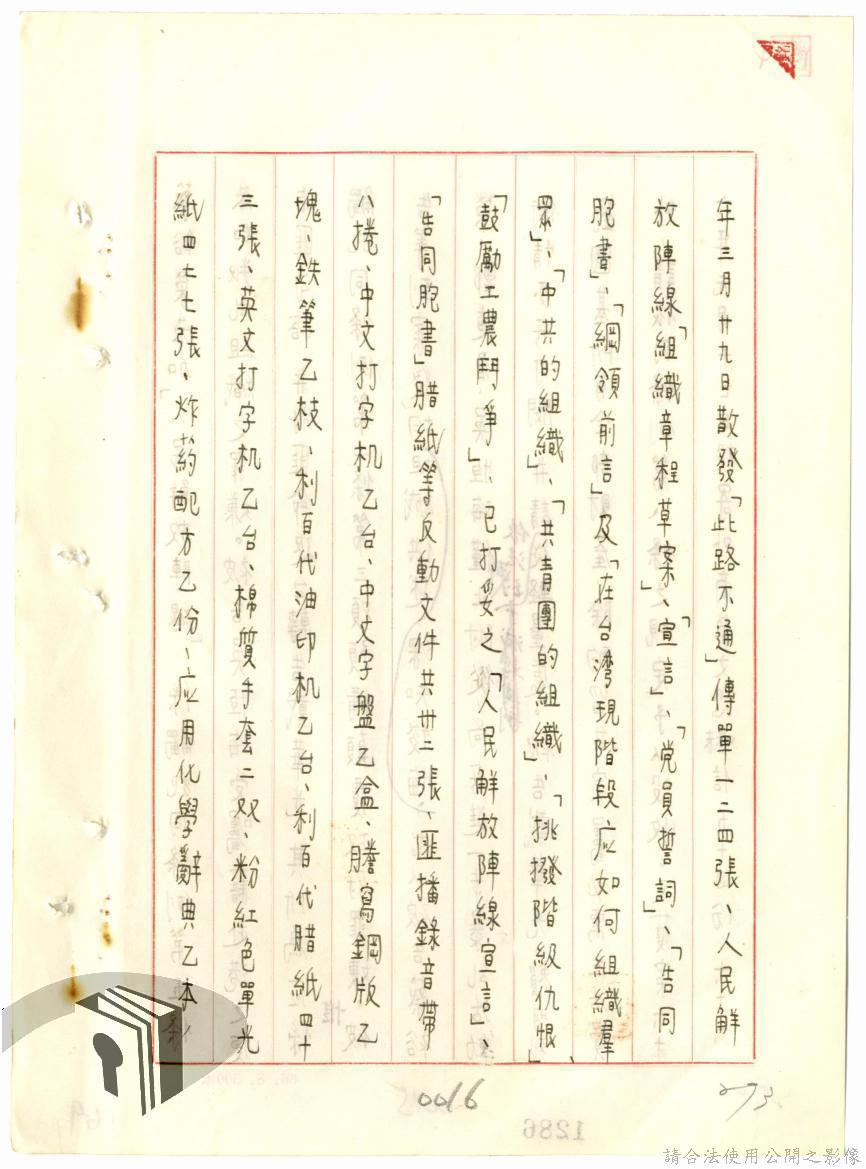 年三月廿九日散發「此路不通」傳單一二四張、人民解
放陣線「組織章程草案」、「宣言」、「党員誓詞」、「告同
胞書」、「綱領前言」及「在台湾現階段应如何組織羣
眾」、「中共的組織」、「共青團的組織」、「挑撥階級仇恨」、
「鼓勵工農鬥爭」、已打妥之「人民解放陣線宣言」、
「告同胞書」腊紙等反動文件共卅二張、匪播錄音帶
八捲、中文打字机乙台、中文字盤乙盒、謄寫鋼版乙
塊、鉄筆乙枝、利百代油印机乙台、利百代腊紙四十
三張、英文打字机乙台、棉質手套二双、粉紅色單光
紙四七七張、炸葯配方乙份、应用化學辭典乙本、
0016
273
1286
請合法使用公開之影像